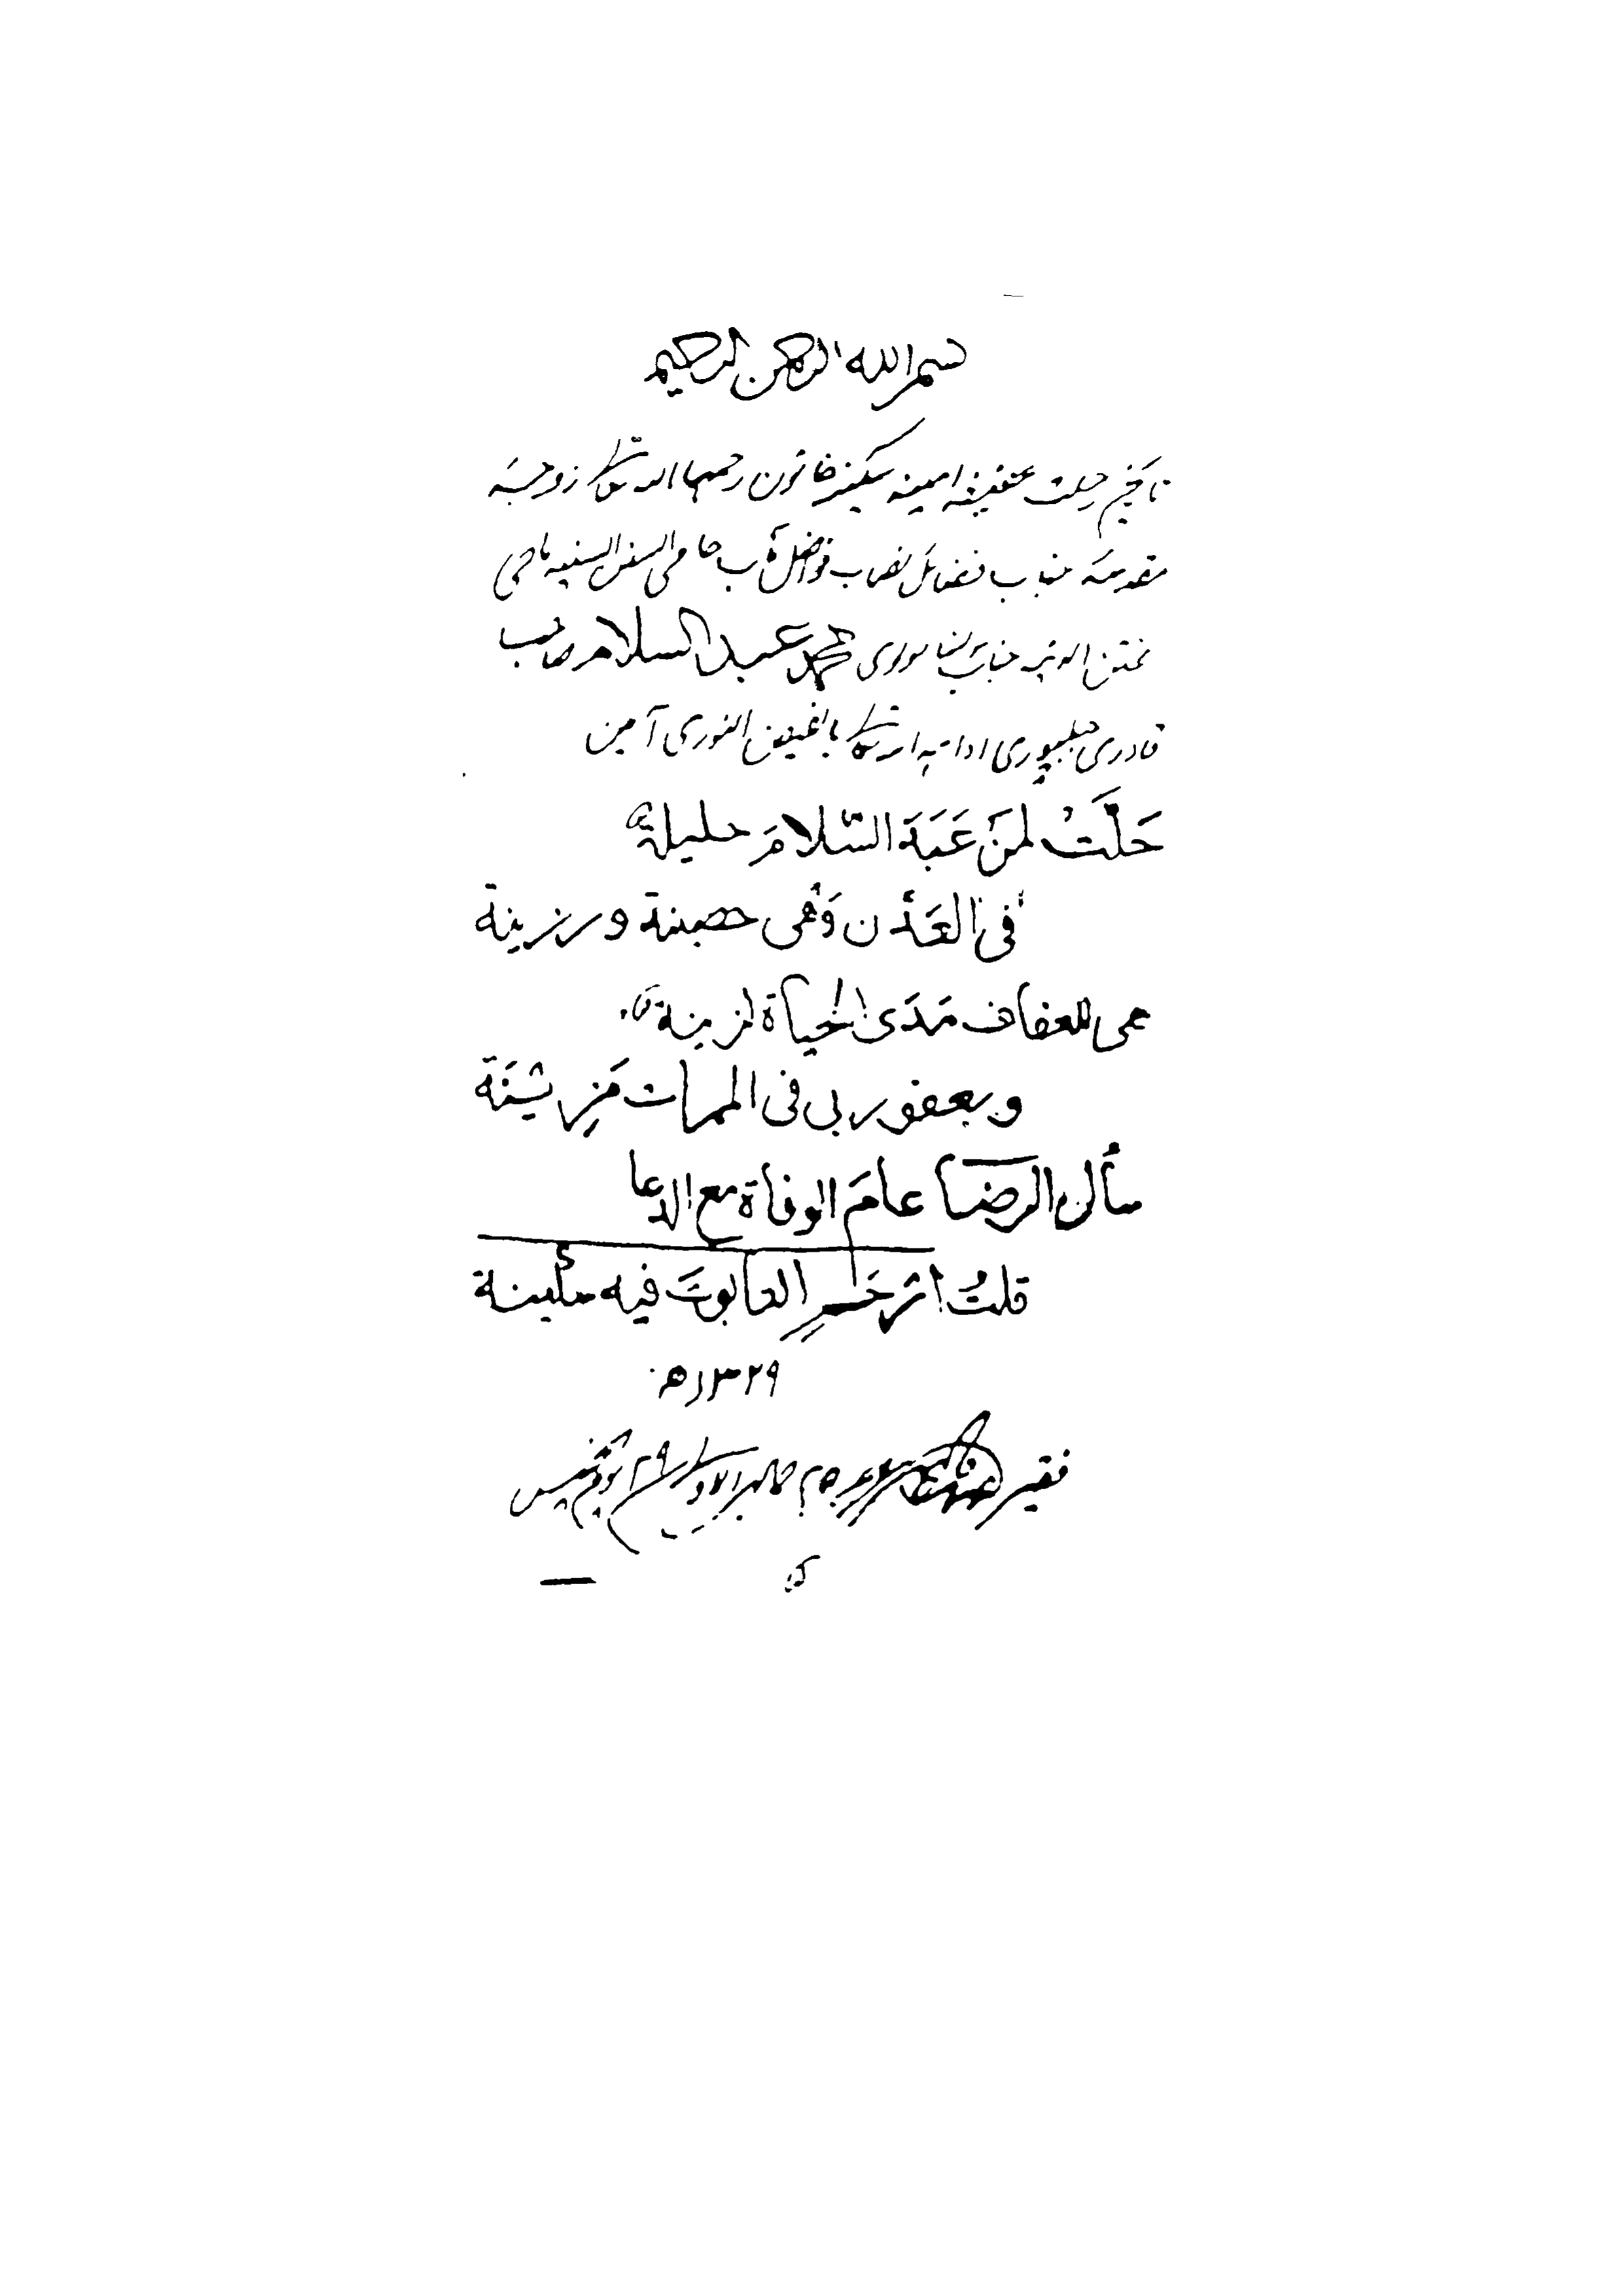 بسم الله الرحمن الرحيم
تاریخ رحلت عفیفہ امینہ سکینہ خاتون رحمہا اللہ تعالٰی زوجہ
مقدسہ جناب فضائل نصاب فواضل مآب حامی السنن السنیہ ماحی
الفتن الدنیہ جناب مولٰنا مولوی محمد عبد السلام صاحب
قادری جبلپوری ادامہ اللہ تعالٰی بالفیض النوری آمین
حَلَّتْ لمَن عَبَدَ السَّلامَ حليلةٌ
فى العَدْن وَهْى حصينة ورزينة
هى للعفاف مَدَى الحياة لزينة
وبعفو ربى فى الممات مَزِيْنَة
سأل الرضا عامَ الوفاة مع الدعا
قلتُ ارْخَ التابوتَ فيه سكينة
١٣٢٩ھ
فقير ٢٥ جمادی الاولٰی ٢٩ يوم الخميس